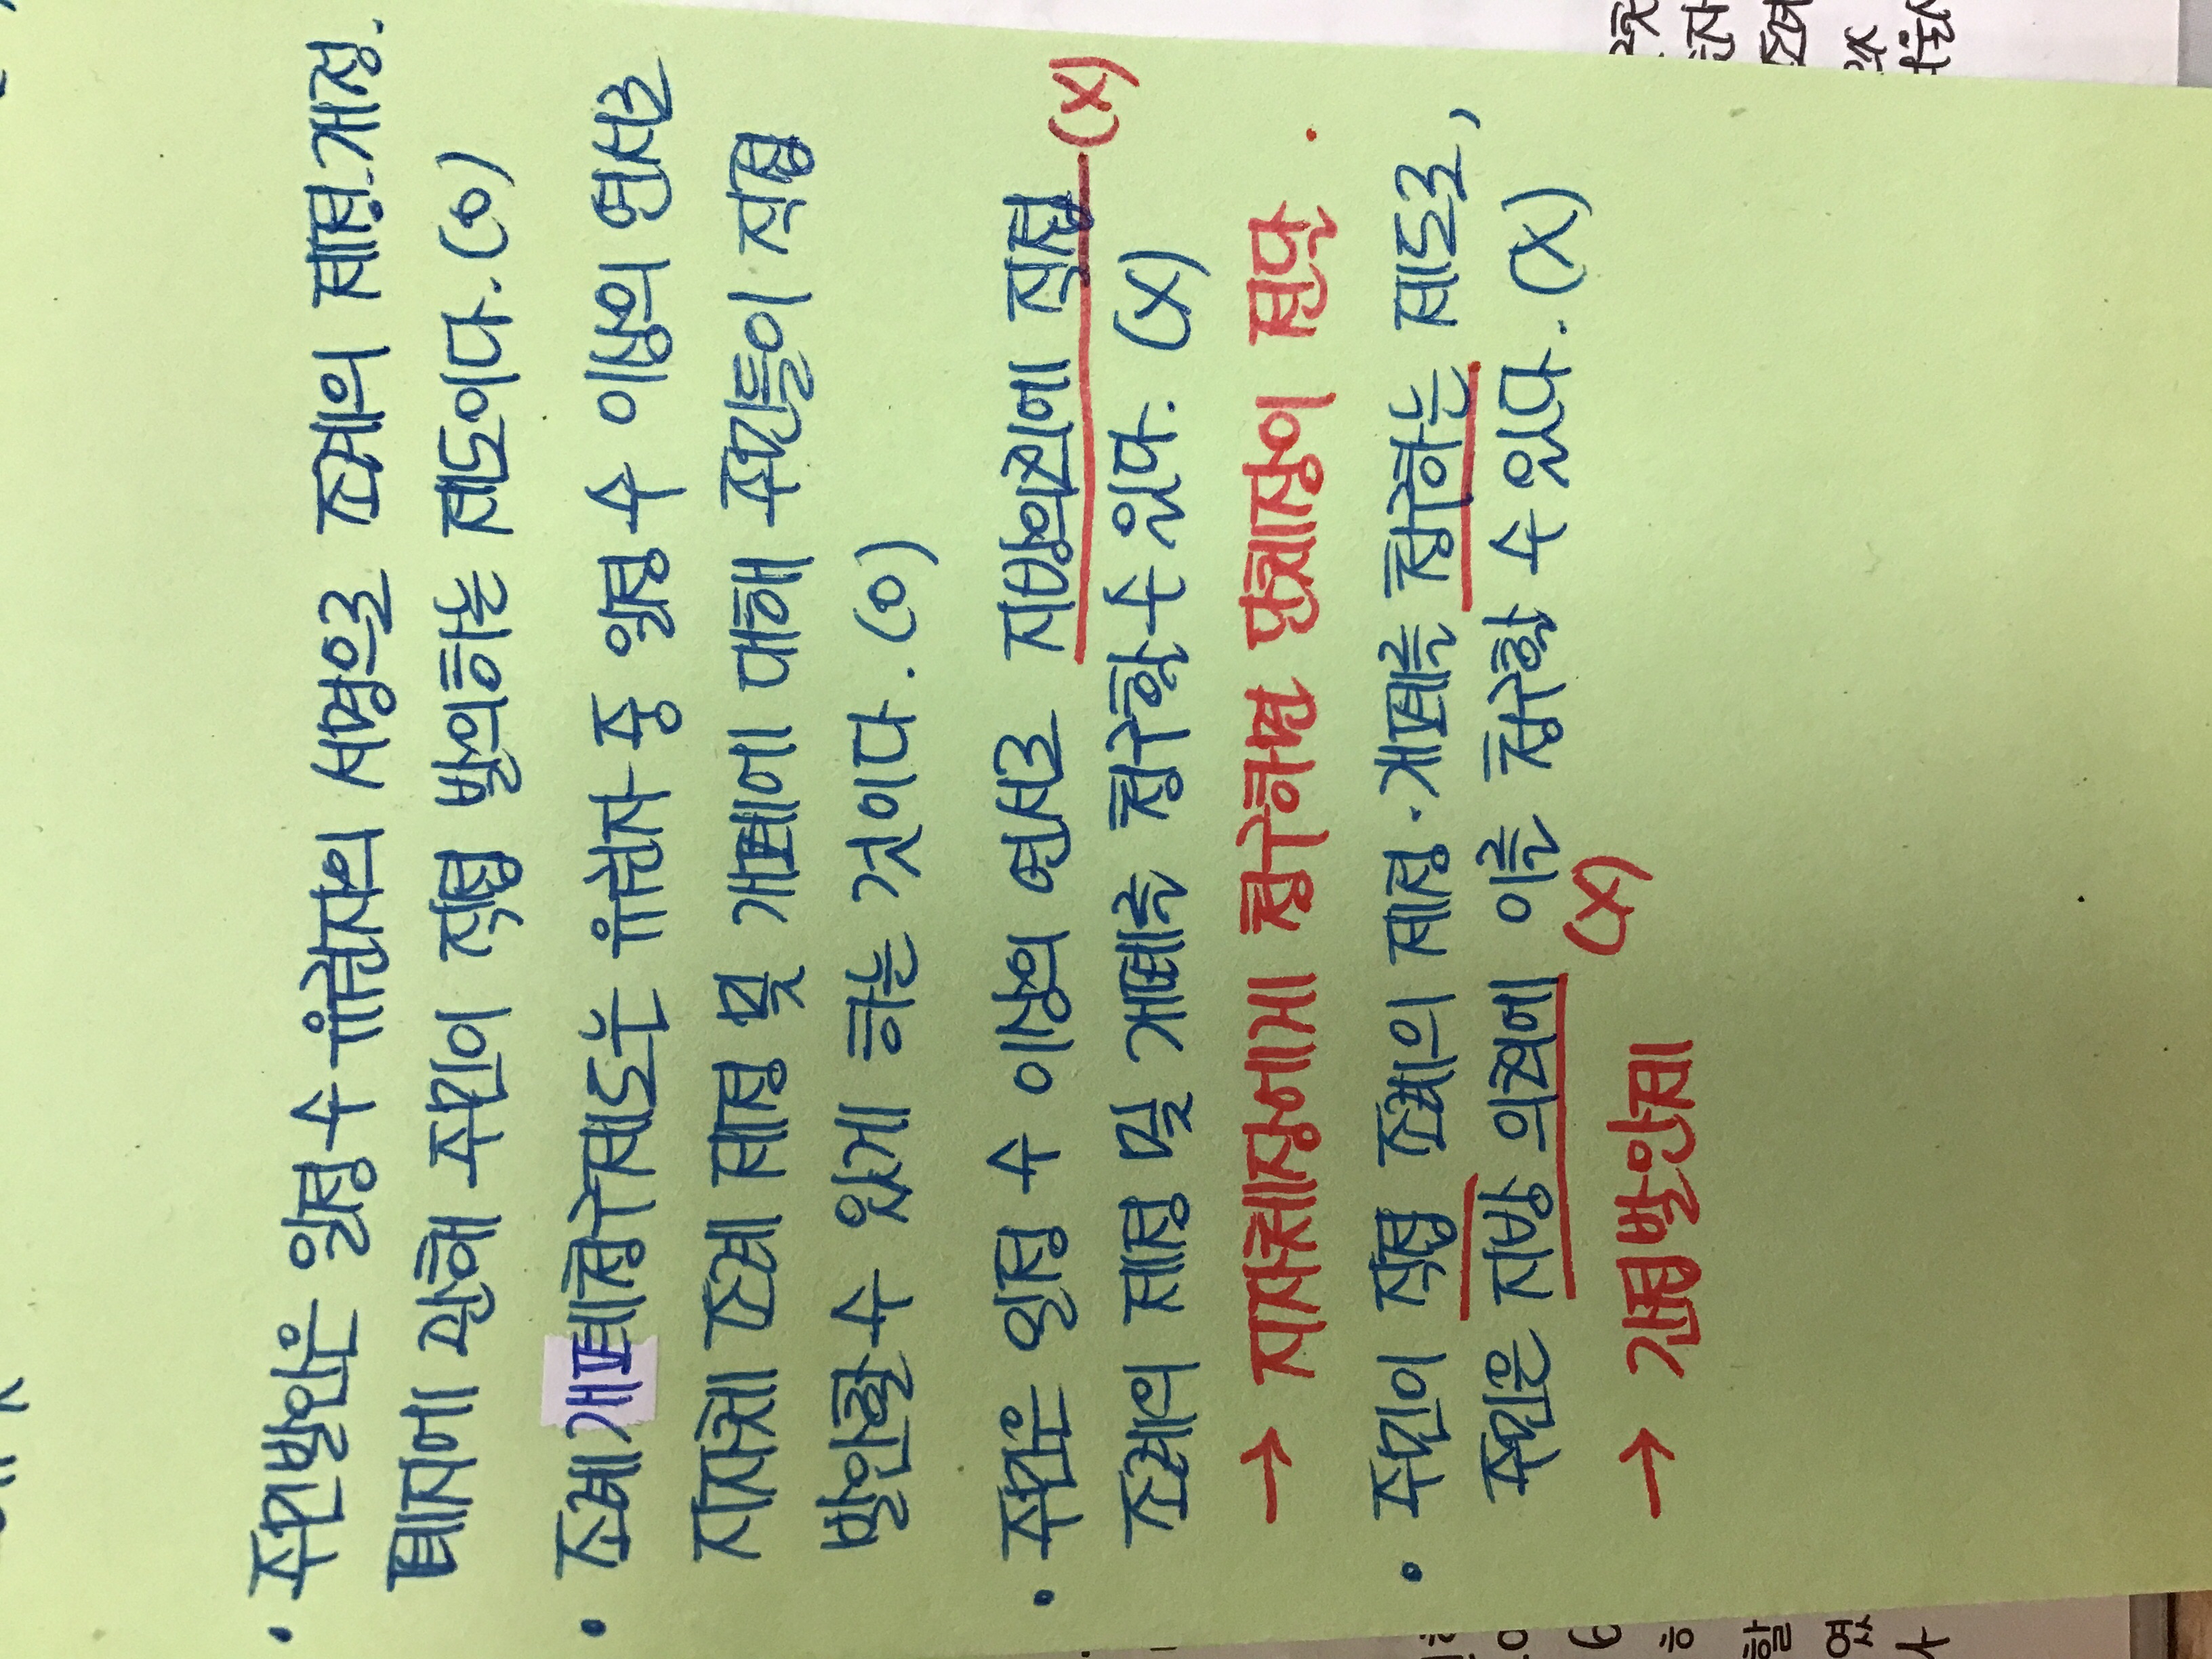 · 주민발안은 일정 수 유권자의 서명으로 조례의 제정.개정.
폐지에 관해 주민이 직접 발의하는 제도이다. (o)
· 조례개폐청구제도는 유권자 중 일정 수 이상의 연서로
지자체 조례 제정 및 개폐에 대해 주민들이 직접
발안할 수 있게 하는 것이다. (o)
· 주민은 일정 수 이상의 연서로 지방의회에 직접 (X)
조례의 제정 및 개폐를 청구할 수 있다. (X)
→ 지자체장에게 청구하면 단체장이 한다.
· 주민이 직접 조례의 제정·개폐를 청구하는 제도로,
주민은 지방 의회에 이를 청구할 수 있다. (X)
(X)
→ 간접발안제